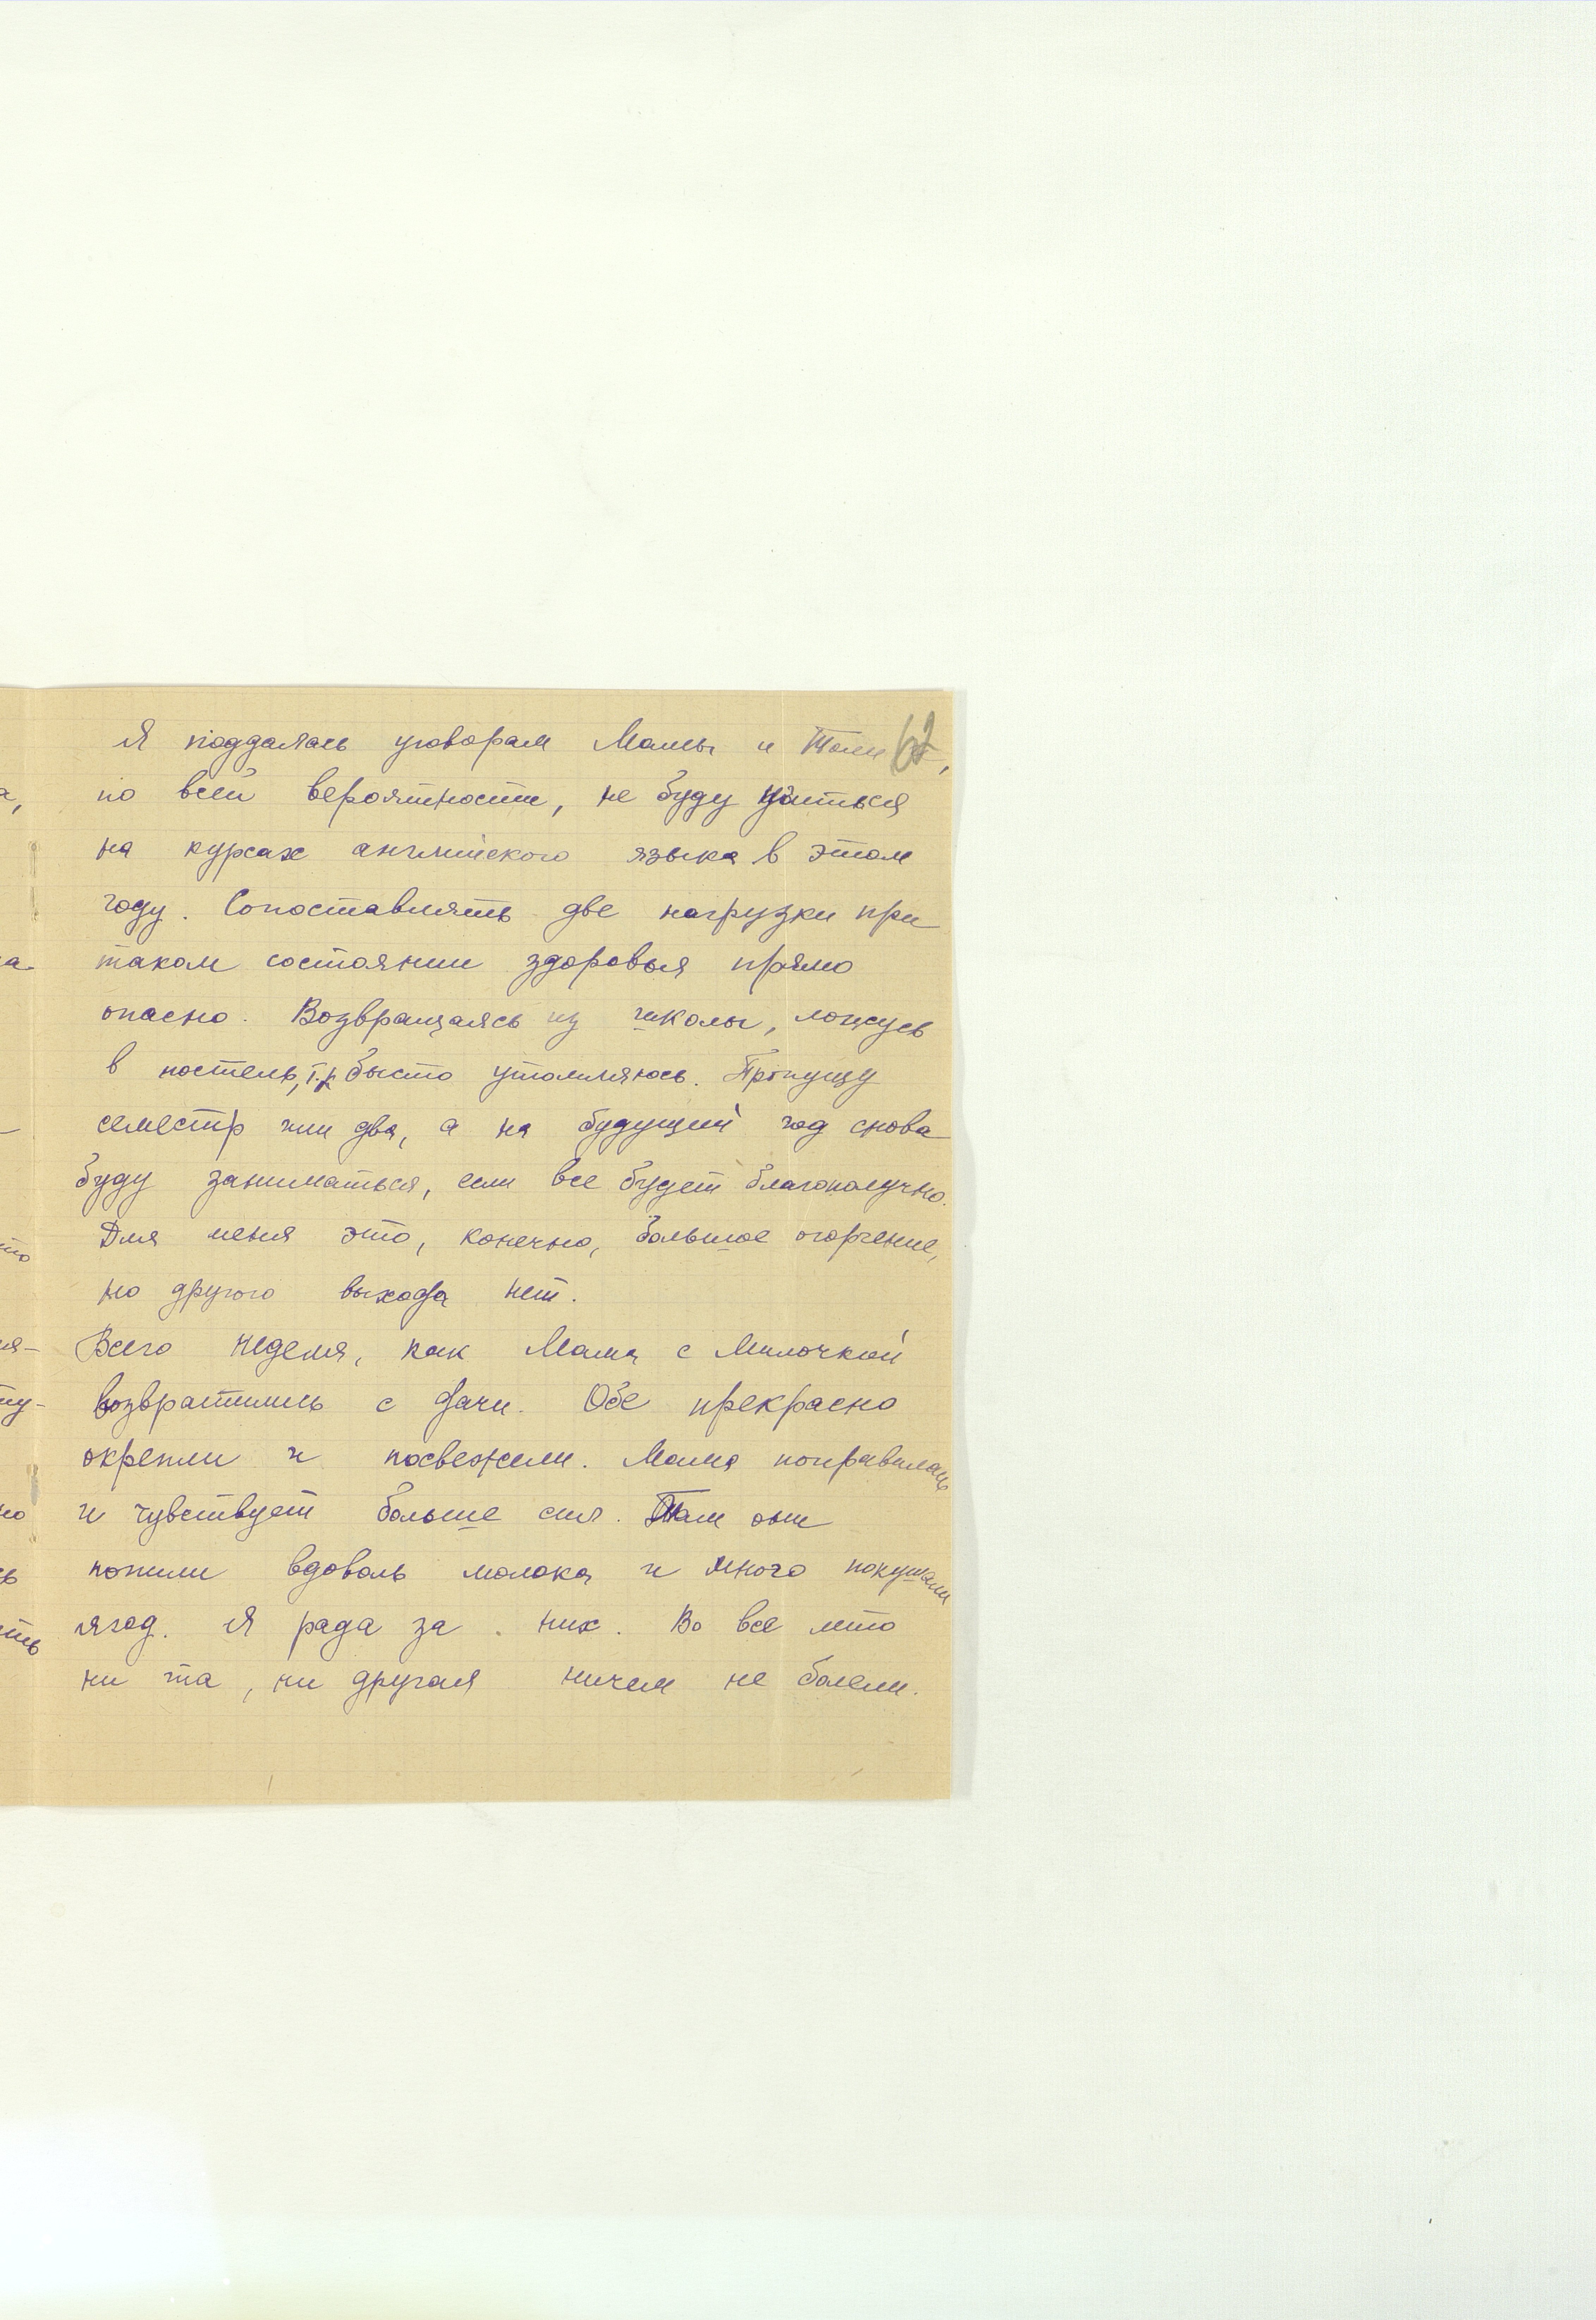 Я поддалась уговорам Мамы и Толи и,
по всей вероятности, не буду учиться
на курсах английского языка в этом
году. Сопоставлять две нагрузки при
таком состоянии здоровья прямо
опасно. Возвращаясь из школы, ложусь
в постель, т.к. бысто утомляюсь. Пропущу
семестр или два, а на будущий год снова
буду заниматься, если все будет благополучно.
Для меня это, конечно, большое огорчение,
но другого выхода нет.
Всего неделя, как Мама с Милочкой
возвратились с дачи. Обе прекрасно
окрепли и посвежели. Мама поправилась
и чувствует больше сил. Там они
попили вдоволь молока и много покушали
ягод. Я рада за них. Во все лето
ни та, ни другая ничем не болели.